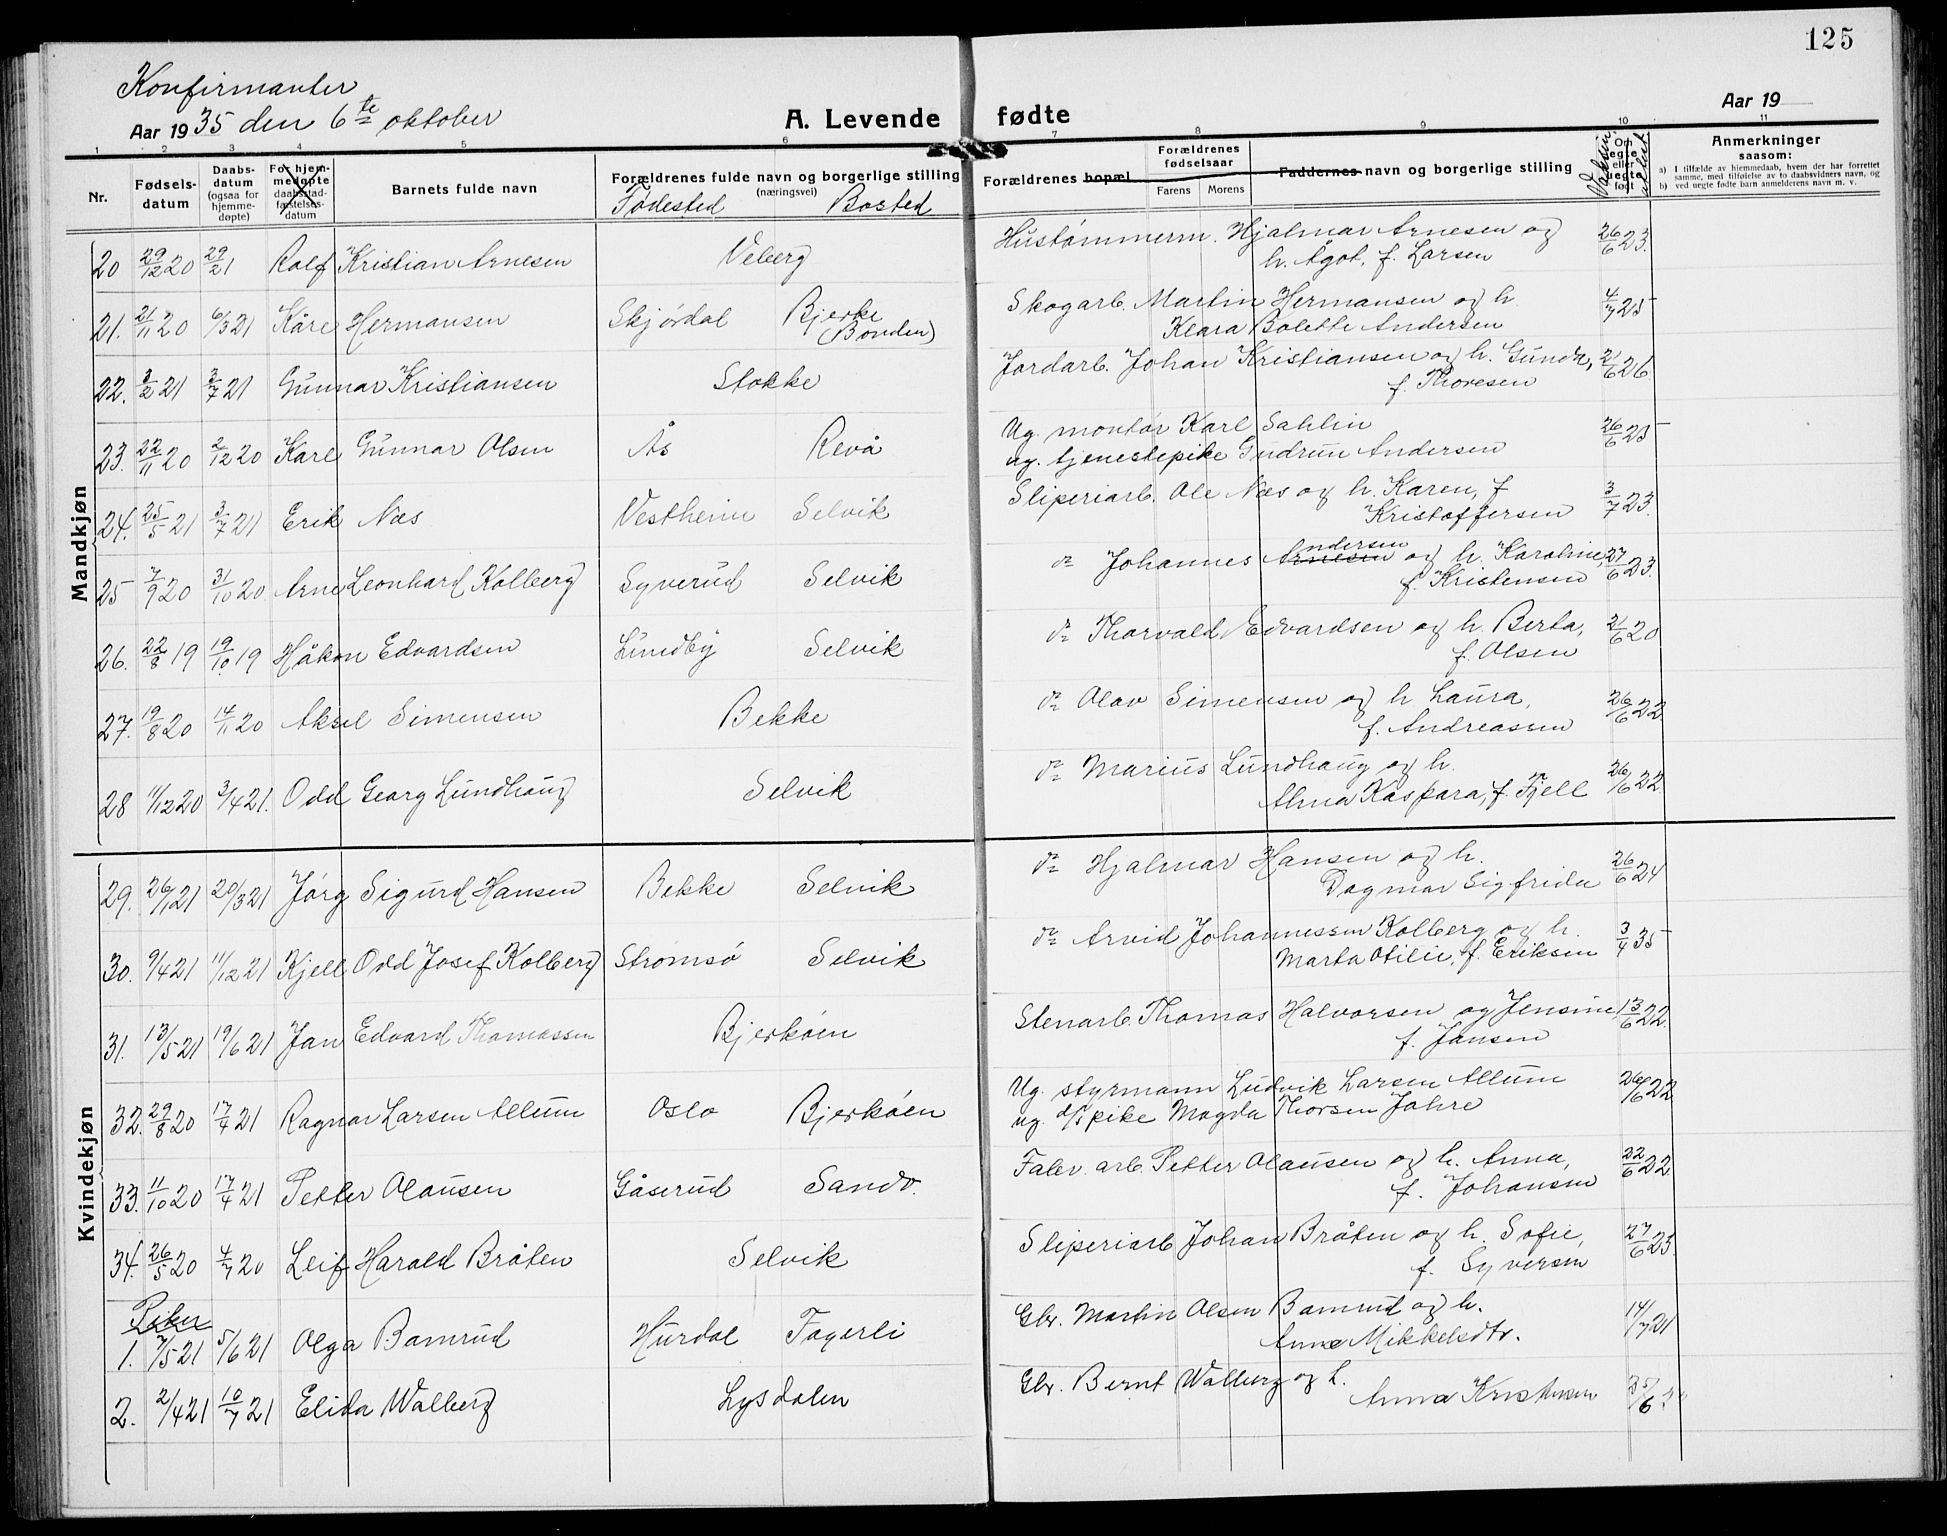 125
Konfirmanter
Aar 1935 den 6te oktober
A. Levende fødte
Aar 19
1 2 3 4 5 6 7 8 9 10 11
Nr.
Fødsels-
datum
Daabs-
datum
(ogsaa for
hjemme-
døpte)
For hjem-
medøpte
daabsstad-
fæstelses-
datum
Barnets fulde navn
Forældrenes fulde navn og borgerlige stilling
(næringsvei)
Fødested Bosted
Forældrenes bopæl
Forældrenes
fødselsaar
Farens Morens
Faddernes navn og borgerlige stilling
Om
egte
eller
uegte
født
Anmerkninger
saasom:
a) I tilfælde av hjemmedaab, hvem der har forrettet
samme, med tilføielse av to daabsvidners navn, og
b) ved uegte fødte barn anmelderens navn m. v.
Mandkjøn
20 29/12 20 29/21 Rolf Kristian Arnesen Veberg Hustømmerm. Hjalmar Arnesen og 26/6 23.
h. Ågot, f. Larsen
21. 21/11 20 6/3 21 Kåre Hermansen Skjørdal Bjerke Skogarb. Martin Hermansen og h. 4/7 25
(Bonden) Klara Bolette Andersen
22. 3/2 21 3/7 21 Gunnar Kristiansen Stokke Jordarb. Johan Kristiansen og h. Gunda, 21/6 26.
f. Thoresen
23. 22/11 20 2/12 20 Kare Gunnar Olsen Ås Revå Ug. montør Karl Sahlin 26/6 25
ug. tjenestepike Gudrun Andersen
24. 25/5 21 3/7 21 Erik Næs Vestheim Selvik Sliperiarb. Ole Næs og h. Karen, f. 3/7 23.
Kristoffersen
25 7/9 20 31/10 20. Arne Leonhard Kolberg Syverud Selvik do Johannes Arnesen Andersen og h. Karoline, 27/6 23.
f. Kristensen
26. 22/8 19 19/10 19 Håkon Edvardsen Lundby Selvik do Thorvald Edvardsen og h. Berta, 21/6 20
f. Olsen
27. 19/8 20 14/11 20 Aksel Simensen Bekke do Olav Simensen og h. Laura, 26/6 22
f. Andreassen
28 11/12 20 3/4 21. Odd Georg Lundhaug Selvik do Marius Lundhaug og h. 26/6 22
Alma Kaspara, f. Fjell
Kvindekjøn
29. 26/1 21 20/3 21 Jørg Sigurd Hansen Bekke Selvik do Hjalmar Hansen og h. 26/6 24
Dagmar Sigfrida
30. 9/4 21 11/12 21 Kjell Odd Josef Kolberg Strømsø Selvik do Arvid Johannessen Kolberg og h. 3/4 35
Marta Otilie, f. Eriksen
31. 13/5 21 19/6 21 Jan Edvard Thomassen Bjerkøen Stenarb. Thomas Halvorsen og Jensine, 13/6 22
f. Jansen
32. 29/8 20 17/4 21 Ragnar Larsen Allum Oslo Bjerkøen Ug. styrmann Ludvik Larsen Allum 26/6 22
ug. pike Magda Thorsen Jahre
33. 11/10 20 17/4 21 Petter Olausen Gåserud Sandv. Fabr. arb. Petter Olausen og h. Anna, 22/6 22
f. Johansen
34. 26/5 20 4/7 20 Leif Harald Bråten Selvik Sliperiarb Johan Bråten og h. Sofie, 27/6 23
f. Syversen
Piker
1. 7/5 21 5/6 21 Olga Bamrud Hurdal Fagerli Gbr. Martin Olsen Bamrud og h. 14/7 21
Anne Mikkelsdtr.
2. 2/4 21 10/7 21 Elida Walberg Lysdalen Gbr. Bernt Walberg og h.
Anna Kristensen